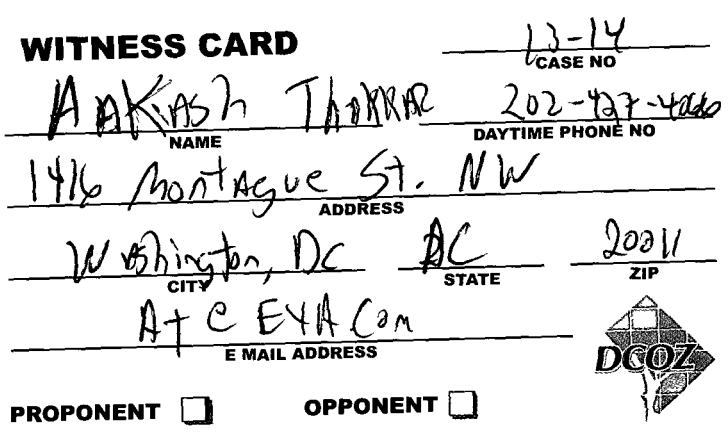 WITNESS CARD
13-14
CASE NO
AAKASh ThAKKAR
202-427-4066
NAME
DAYTIME PHONE NO
1416 Montague St. NW
ADDRESS
Washington, DC
DC
20011
CITY
STATE
ZIP
At@EYA.Com
E MAIL ADDRESS
DCOZ
PROPONENT
OPPONENT